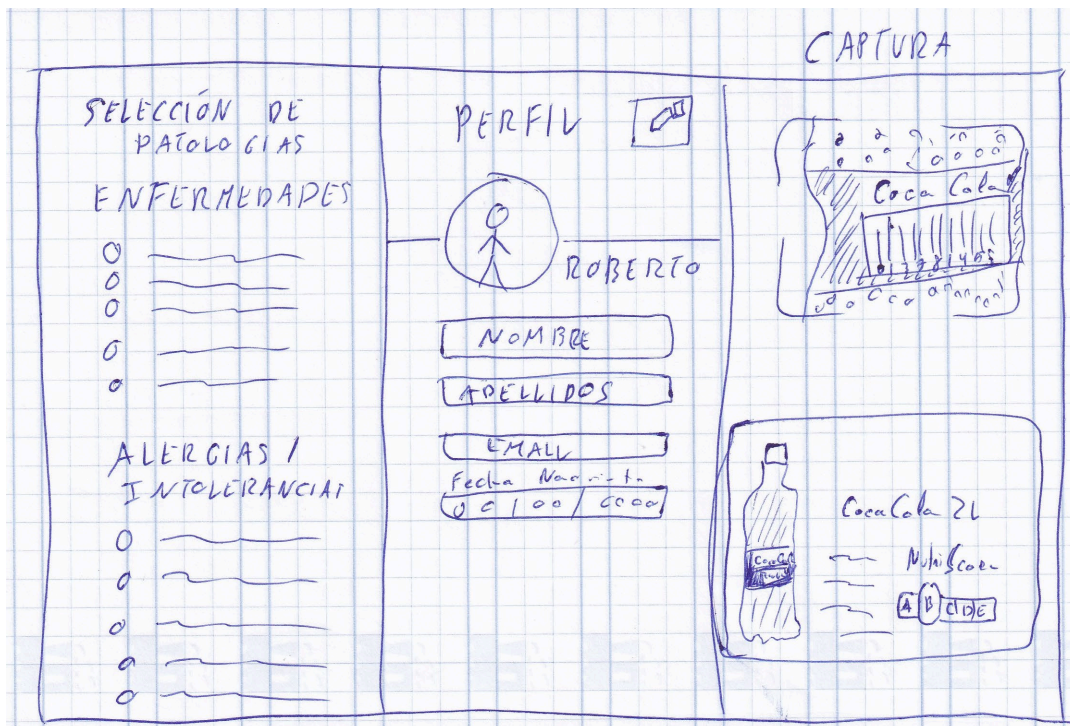 SELECCIÓN DE
PATOLOGIAS
ENFERMEDADES
ALERGIAS /
INTOLERANCIAS
PERFIL
ROBERTO
NOMBRE
APELLIDOS
EMAIL
Fecha
00/00/0000
CAPTURA
Coca Cola
CocaCola 2L
NutriScore
A B C D E